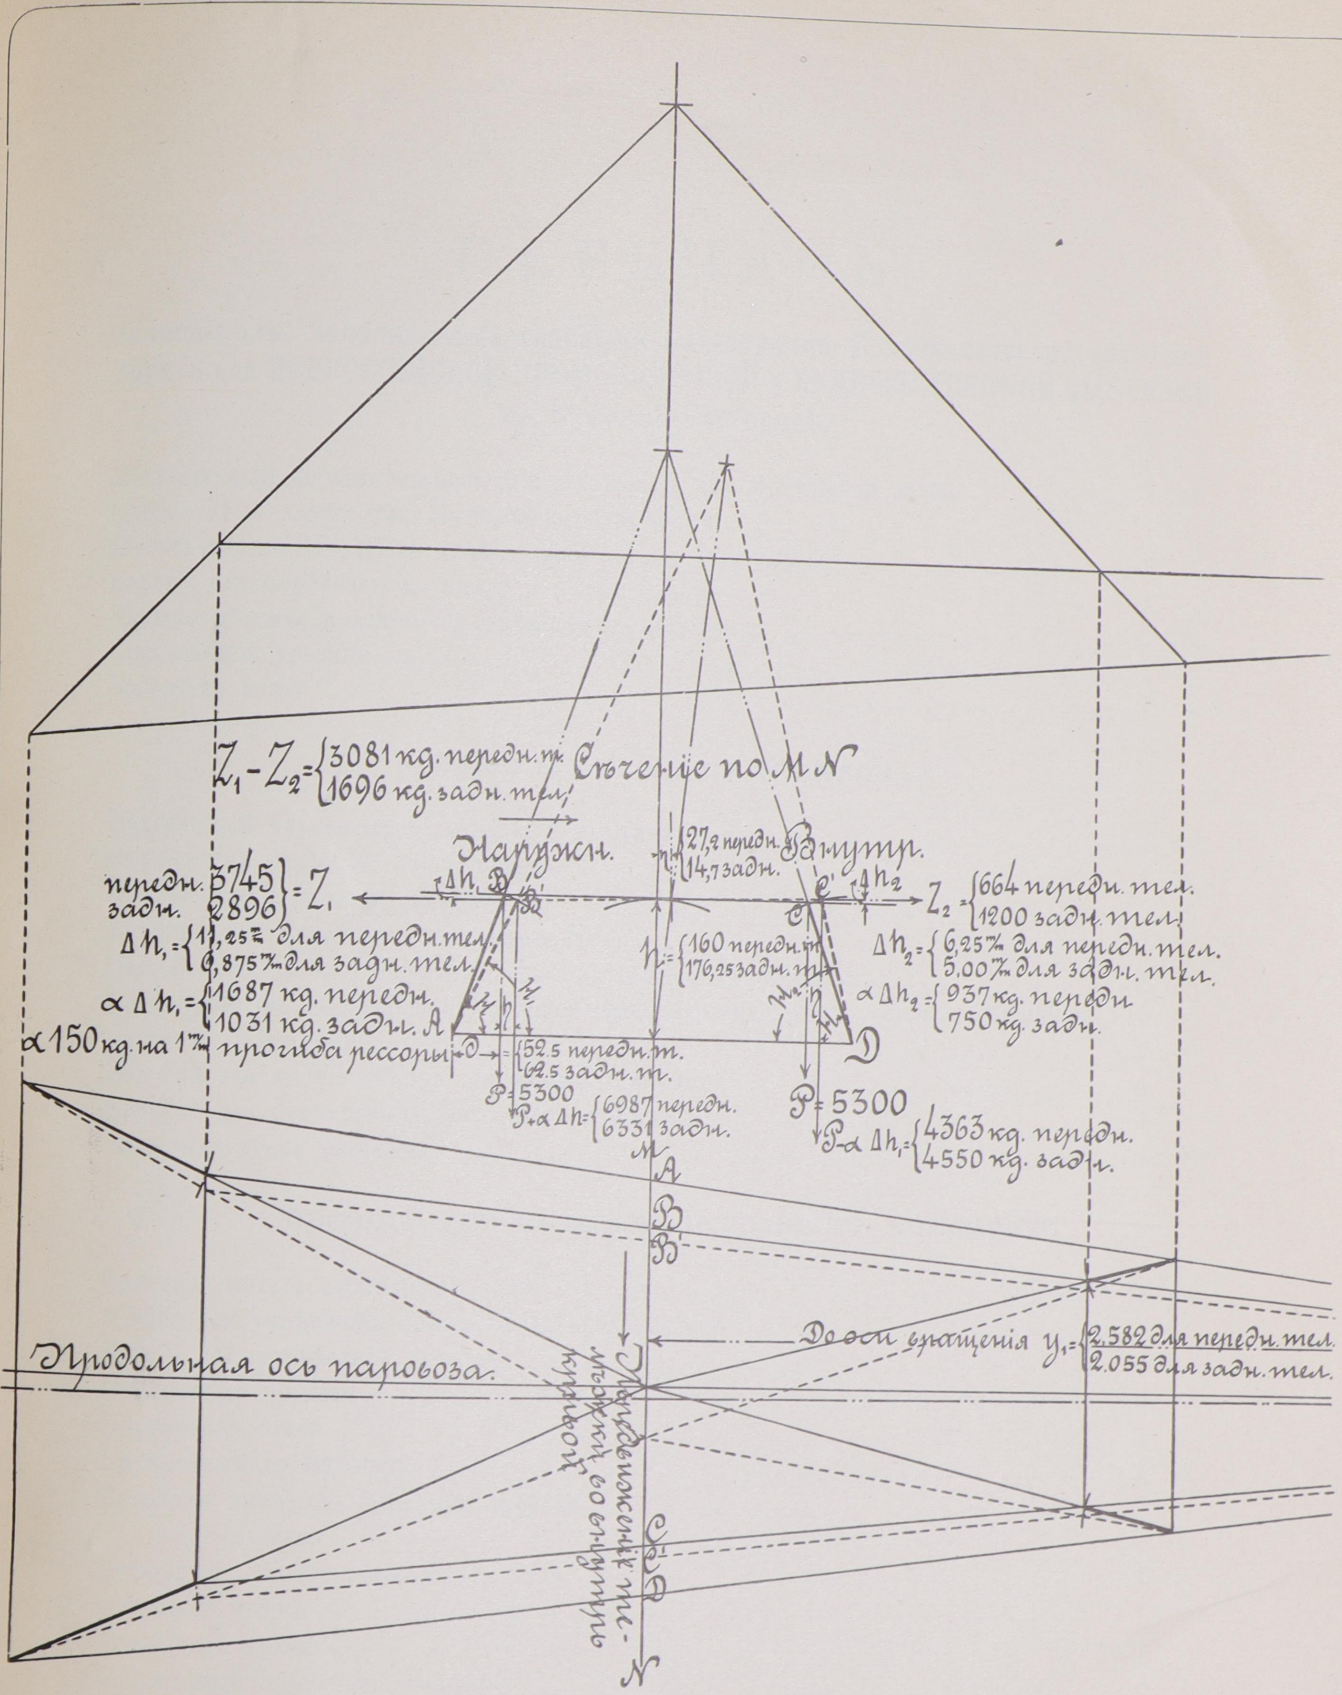 Z₁-Z₂={3081 кд. передн. т.
{1696 кд. задн. тел.
Сѣченіе по MN
Наружн.
Внутр.
{27,2 передн.
{14,7 задн.
передн. 3745} = Z₁
задн. 2896}
Δh₁ B B'
C C' Δh₂
Z₂={664 передн. тел.
{1200 задн. тел.
Δh₁={11,25 m/m для передн. тел.
{6,875 m/m для задн. тел.
h={160 передн. т.
{176,25 задн. т.
Δh₂={6,25 m/m для передн. тел.
{5,00 m/m для задн. тел.
αΔh₁={1687 кд. передн.
{1031 кд. задн.
αΔh₂={937 кд. передн
{750 кд. задн.
A
D
α 150 кд. на 1 m/m прогиба рессоры
={52.5 передн. т.
{62.5 задн. т.
P=5300
P=5300
P+αΔh={6987 передн.
{6331 задн.
P-αΔh₁={4363 кд. передн.
{4550 кд. задн.
M
A
B
B'
До оси вращенія y₁={2.582 для передн. тел.
{2.055 для задн. тел.
Продольная ось паровоза.
Передвиженіе те-
лѣжки во внутрь
кривой
C
C'
D
N